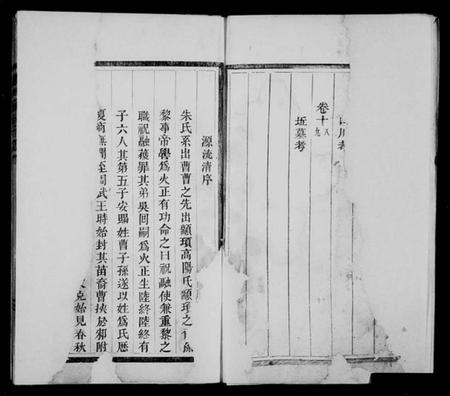 卷十八
九
坵墓考
源流清序
朱氏系出曹曹之先出顓頊高陽氏顓頊之
黎事帝嚳爲火正有功命之曰祝融使兼重黎之
職祝融獲罪其弟吳回嗣爲火正生陸終陸終有
子六人其第五子安賜姓曹子孫遂以姓爲氏歷
夏商 周至周武王時始封其苗裔曹挾於邾附
克始見春秋